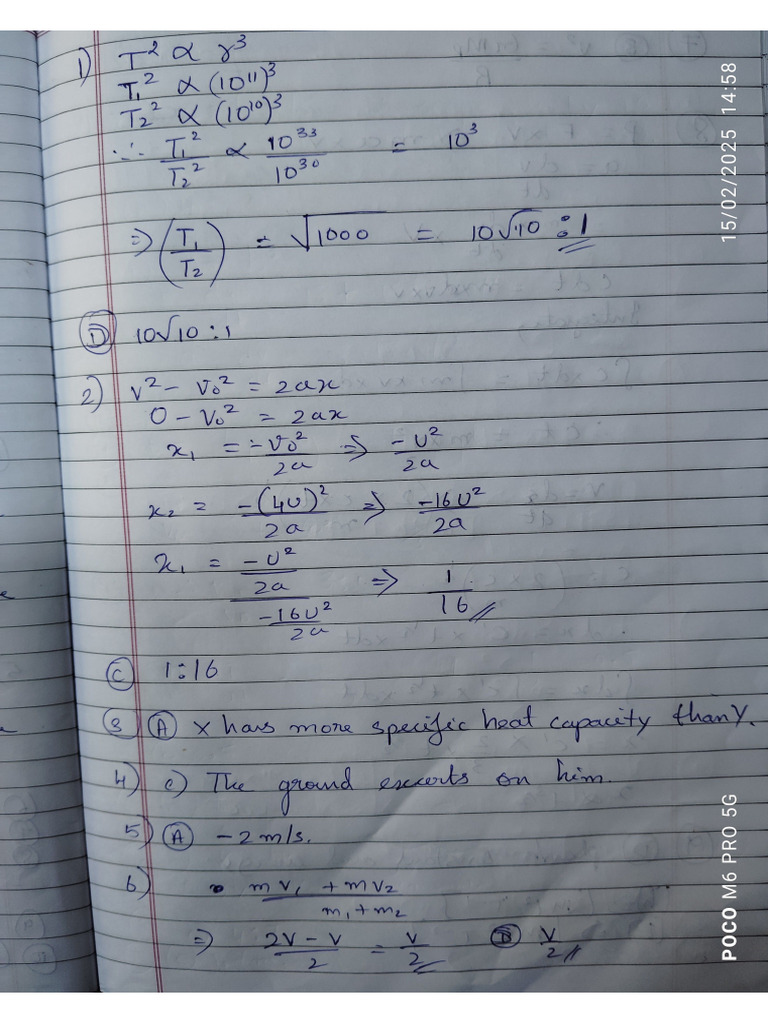 1) T² ∝ r³
T₁² ∝ (10¹¹)³
T₂² ∝ (10¹⁰)³
∴ T₁²/T₂² ∝ 10³³/10³⁰ = 10³
⇒ (T₁/T₂) = √1000 = 10√10 : 1
(D) 10√10 : 1
2) V² - V₀² = 2ax
0 - V₀² = 2ax
x₁ = -V₀²/2a ⇒ -U²/2a
x₂ = -(4U)²/2a ⇒ -16U²/2a
x₁ = (-U²/2a)/(-16U²/2a) ⇒ 1/16
(C) 1:16
3) (A) X has more specific heat capacity than Y.
4) c) The ground excerts on him.
5) (A) -2 m/s.
6) • (mV₁ + mV₂)/(m₁ + m₂)
⇒ (2V - V)/2 = V/2 (B) V/2
15/02/2025 14:58
POCO M6 PRO 5G